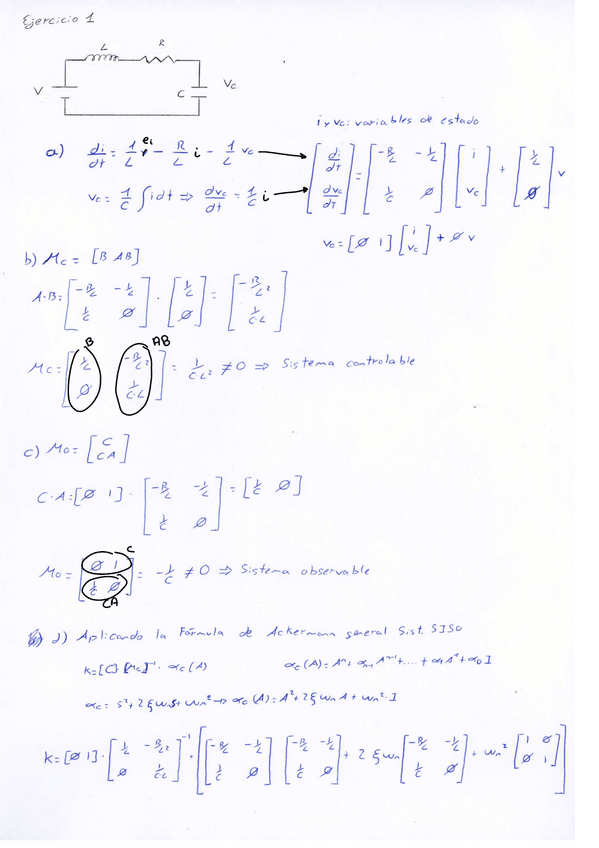 Ejercicio 1
L R
V C Vc
i y vc: variables de estado
a) di/dt = 1/L v - R/L i - 1/L vc → [di/dt ; dvc/dt] = [-R/L -1/L ; 1/C Ø] [i ; vc] + [1/L ; Ø] v
ei
vc = 1/C ∫ i dt ⇒ dvc/dt = 1/C i
vc = [Ø 1] [i ; vc] + Ø v
b) Mc = [B AB]
A·B = [-R/L -1/L ; 1/C Ø] · [1/L ; Ø] = [-R/L² ; 1/C·L]
B AB
Mc = [1/L -R/L² ; Ø 1/C·L] = 1/CL² ≠ 0 ⇒ Sistema controlable
c) Mo = [C ; CA]
C·A = [Ø 1] · [-R/L -1/L ; 1/C Ø] = [1/C Ø]
C
Mo = [Ø 1 ; 1/C Ø] = -1/C ≠ 0 ⇒ Sistema observable
CA
d) Aplicando la Fórmula de Ackermann general Sist. SISO
αc = s² + 2ξwnS + wn² → αc(A) = A² + 2ξwn A + wn²·I
K = [Ø 1] · [1/L -R/L² ; Ø 1/CL]⁻¹ · [[-R/L -1/L ; 1/C Ø] [-R/L -1/L ; 1/C Ø] + 2ξwn [-R/L -1/L ; 1/C Ø] + wn² [1 Ø ; Ø 1]]